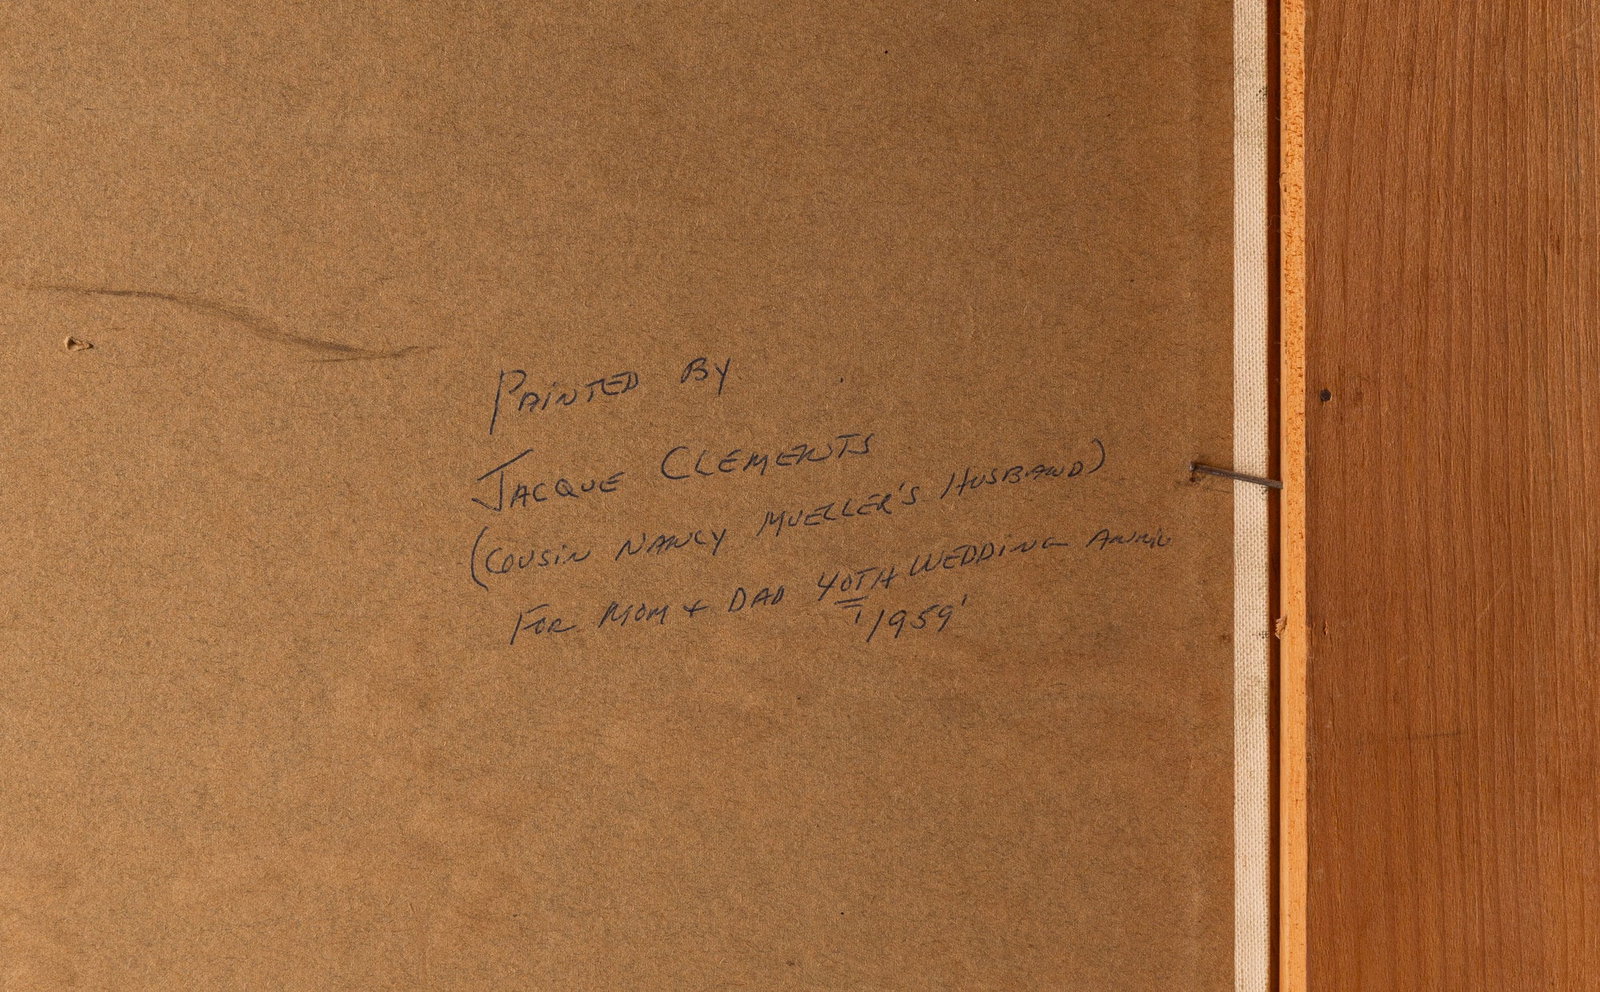 PAiNTED BY
JACQUE CLEMENTS
(COUSiN NANCY MUELLER'S HUSBAND)
FOR MOM + DAD 40TH WEDDiNG ANNiV
'1959'